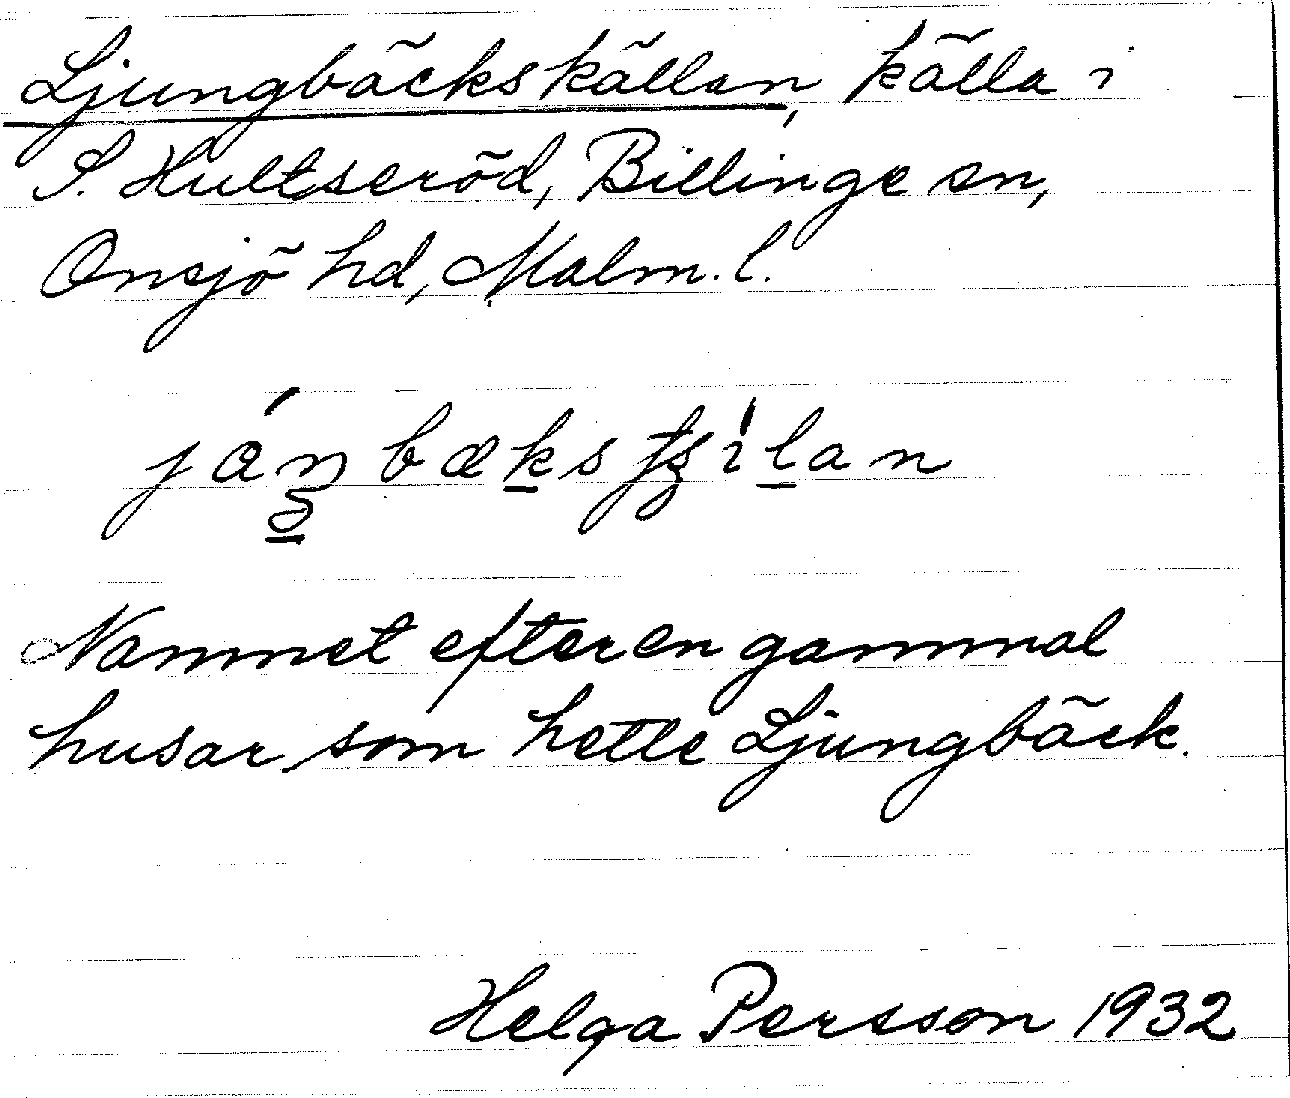 Ljungbäckskällan, källa i
S. Hultseröd, Billinge sn,
Onsjö hd, Malm. l.
Namnet efter en gammal
husar, som hette Ljungbäck.
Helga Persson 1932